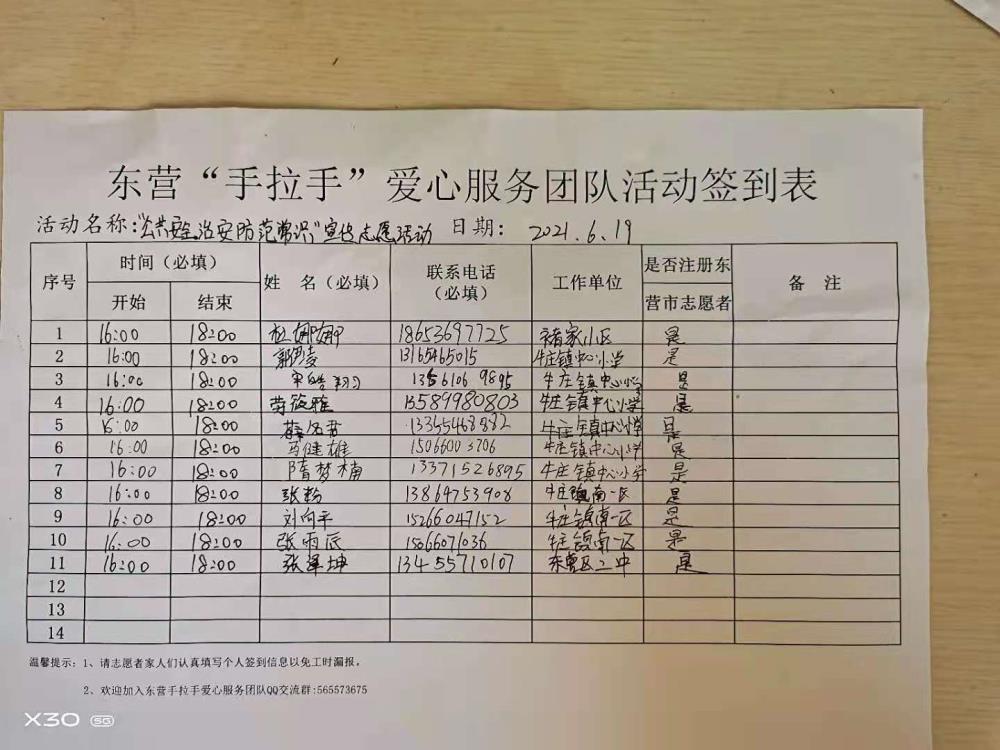 东营“手拉手”爱心服务团队活动签到表
活动名称:“公共安全治安防范常识”宣传志愿活动 日期: 2021.6.19
序号 时间(必填) 姓 名(必填) 联系电话(必填) 工作单位 是否注册东营市志愿者 备 注
开始 结束
1 16:00 18:00 杜娜娜 18653697725 褚家小区 是
2 16:00 18:00 13165465015 牛庄镇中心小学 是
3 16:00 18:00 宋皓翔 1356106 9895 牛庄镇中心小学 是
4 16:00 18:00 劳筱雅 13589980803 牛庄镇中心小学 是
5 16:00 18:00 牛庄镇中心小学 是
6 16:00 18:00 马健雄 1506600 3706 牛庄镇中心小学 是
7 16:00 18:00 隋梦楠 13371526895 牛庄镇中心小学 是
8 16:00 18:00 张粉 13864753908 牛庄镇南一区 是
9 16:00 18:00 刘向平 15266047152 牛庄镇南一区 是
10 16:00 18:00 张雨辰 15066071036 牛庄镇南一区 是
11 16:00 18:00 张泽坤 13455710107 东营区二中 是
12
13
14
温馨提示:1、请志愿者家人们认真填写个人签到信息以免工时漏报。
2、欢迎加入东营手拉手爱心服务团队QQ交流群:565573675
X30 5G